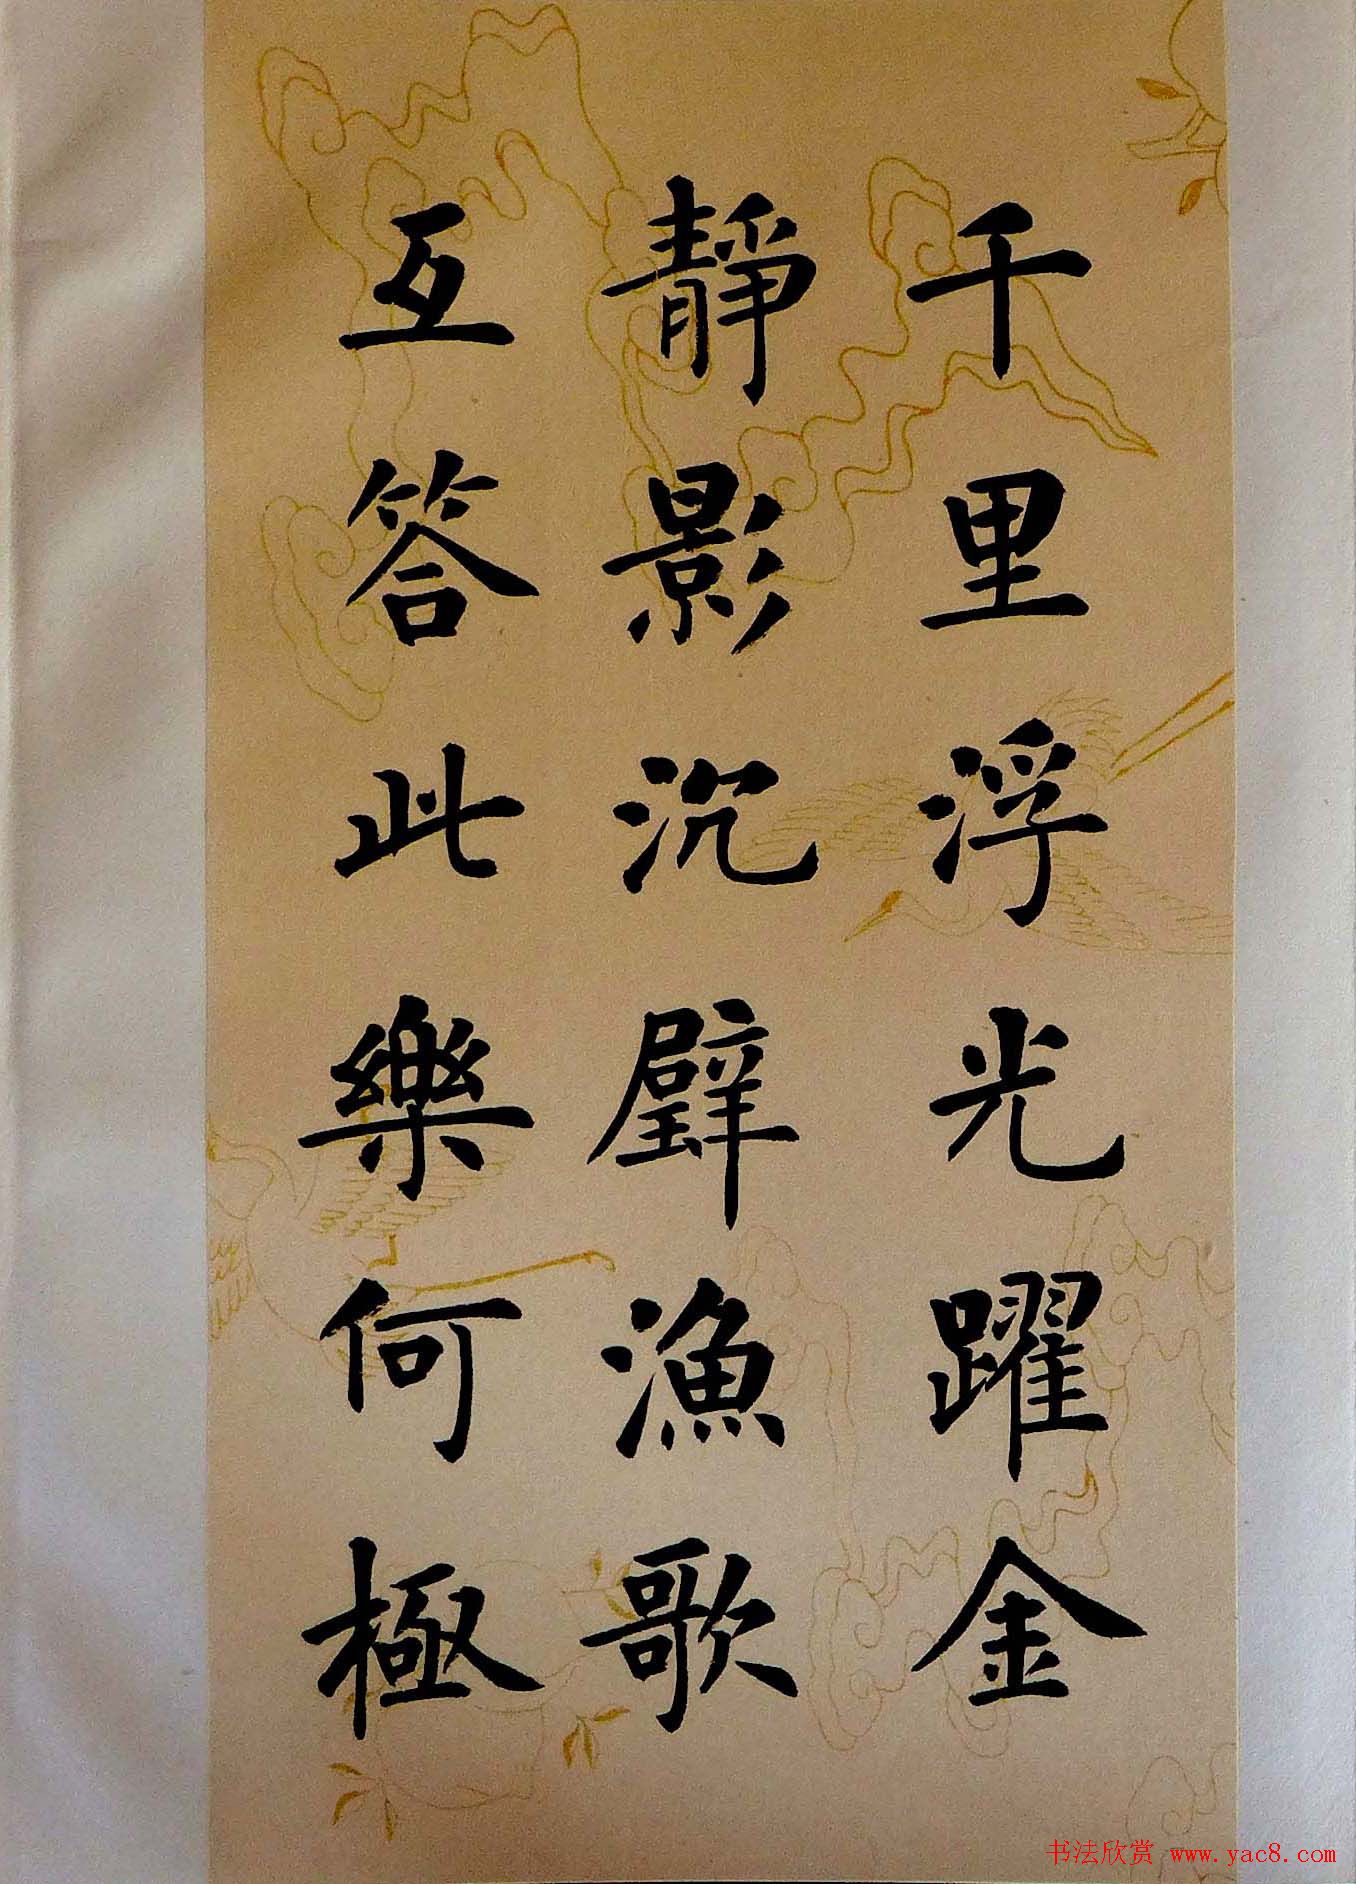 千里浮光躍金
靜影沉璧漁歌
互答此樂何極
书法欣赏 www.yac8.com